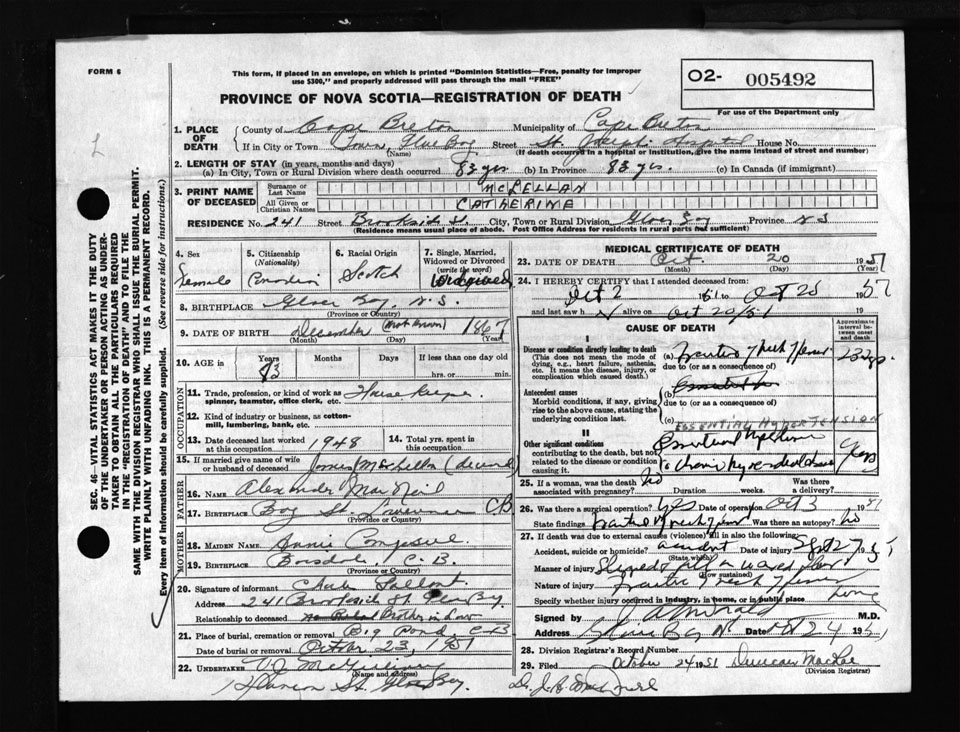 FORM 6
This form, if placed in an envelope, on which is printed "Dominion Statistics—Free, penalty for improper
use $300," and properly addressed will pass through the mail "FREE"
O2- 005492
For use of the Department only
PROVINCE OF NOVA SCOTIA—REGISTRATION OF DEATH
SEC. 46—VITAL STATISTICS ACT MAKES IT THE DUTY
OF THE UNDERTAKER OR PERSON ACTING AS UNDER-
TAKER TO OBTAIN ALL THE PARTICULARS REQUIRED
IN THE "REGISTRATION OF DEATH" AND TO FILE THE
SAME WITH THE DIVISION REGISTRAR WHO SHALL ISSUE THE BURIAL PERMIT.
WRITE PLAINLY WITH UNFADING INK. THIS IS A PERMANENT RECORD.
Every item of information should be carefully supplied. (See reverse side for instructions.)
1. PLACE OF DEATH
County of Cape Breton Municipality of Cape Breton
If in City or Town Town, Glace Bay Street St. Joseph's Hospital House No.
(Name) (If death occurred in a hospital or institution, give the name instead of street and number)
2. LENGTH OF STAY (in years, months and days)
(a) In City, Town or Rural Division where death occurred 83 yrs. (b) In Province 83 yrs. (c) In Canada (if immigrant)
3. PRINT NAME OF DECEASED
Surname or Last Name McLELLAN
All Given or Christian Names CATHERINE
RESIDENCE No. 241 Street Brookside St. City, Town or Rural Division Glace Bay Province N S
(Residence means usual place of abode. Post Office Address for residents in rural parts not sufficient)
4. Sex Female
5. Citizenship (Nationality) Canadian
6. Racial Origin Scotch
7. Single, Married, Widowed or Divorced (write the word) Widowed
8. BIRTHPLACE Glace Bay, N.S.
(Province or Country)
9. DATE OF BIRTH December (Not Known) 1867
(Month) (Day) (Year)
10. AGE in Years 83 Months Days If less than one day old
hrs. or min.
OCCUPATION
11. Trade, profession, or kind of work as spinner, teamster, office clerk, etc. House keeper
12. Kind of industry or business, as cotton-mill, lumbering, bank, etc.
13. Date deceased last worked at this occupation 1948
14. Total yrs. spent in this occupation
15. If married give name of wife or husband of deceased James McLellan (deceased)
FATHER
16. Name Alexander MacNeil
17. Birthplace Bay St. Lawrence CB
(Province or Country)
MOTHER
18. Maiden Name Annie
19. Birthplace C. B.
(Province or Country)
20. Signature of informant
Address 241 Brookside St Glace Bay
Relationship to deceased Brother in Law
21. Place of burial, cremation or removal Big Pond, C.B
Date of burial or removal October 23, 1951
22. UNDERTAKER V.J. McGillivray
(Name and address)
St. Glace Bay
MEDICAL CERTIFICATE OF DEATH
23. DATE OF DEATH Oct. 20 1951
(Month) (Day) (Year)
24. I HEREBY CERTIFY that I attended deceased from:
Oct 2 1951 to Oct 20 1951
and last saw h alive on Oct 20/51 19
CAUSE OF DEATH
Approximate interval between onset and death
I
Disease or condition directly leading to death
(This does not mean the mode of dying, e.g., heart failure, asthenia, etc. It means the disease, injury, or complication which caused death.)
(a) Fractured Neck Femur 23 days
due to (or as a consequence of)
Antecedent causes
Morbid conditions, if any, giving rise to the above cause, stating the underlying condition last.
(b)
due to (or as a consequence of)
(c) ESSENTIAL HYPERTENSION
II
Other significant conditions contributing to the death, but not related to the disease or condition causing it.
Essential Hypertension
Chronic Myocardial Years
25. If a woman, was the death associated with pregnancy? No Duration weeks. Was there a delivery?
26. Was there a surgical operation? Yes Date of operation Oct 3 1951
State findings Fractured neck femur Was there an autopsy? No
27. If death was due to external causes (violence) fill in also the following:
Accident, suicide or homicide? accident Date of injury Sept 27 1951
(State which)
Manner of injury Slipped & fell on waxed floor
(How sustained)
Nature of injury Fracture Neck Femur
Specify whether injury occurred in industry, in home, or in public place home
Signed by M.D.
Address Glace Bay N Date Oct 24 1951
28. Division Registrar's Record Number
29. Filed October 24 1951 Duncan MacRae
(Division Registrar)